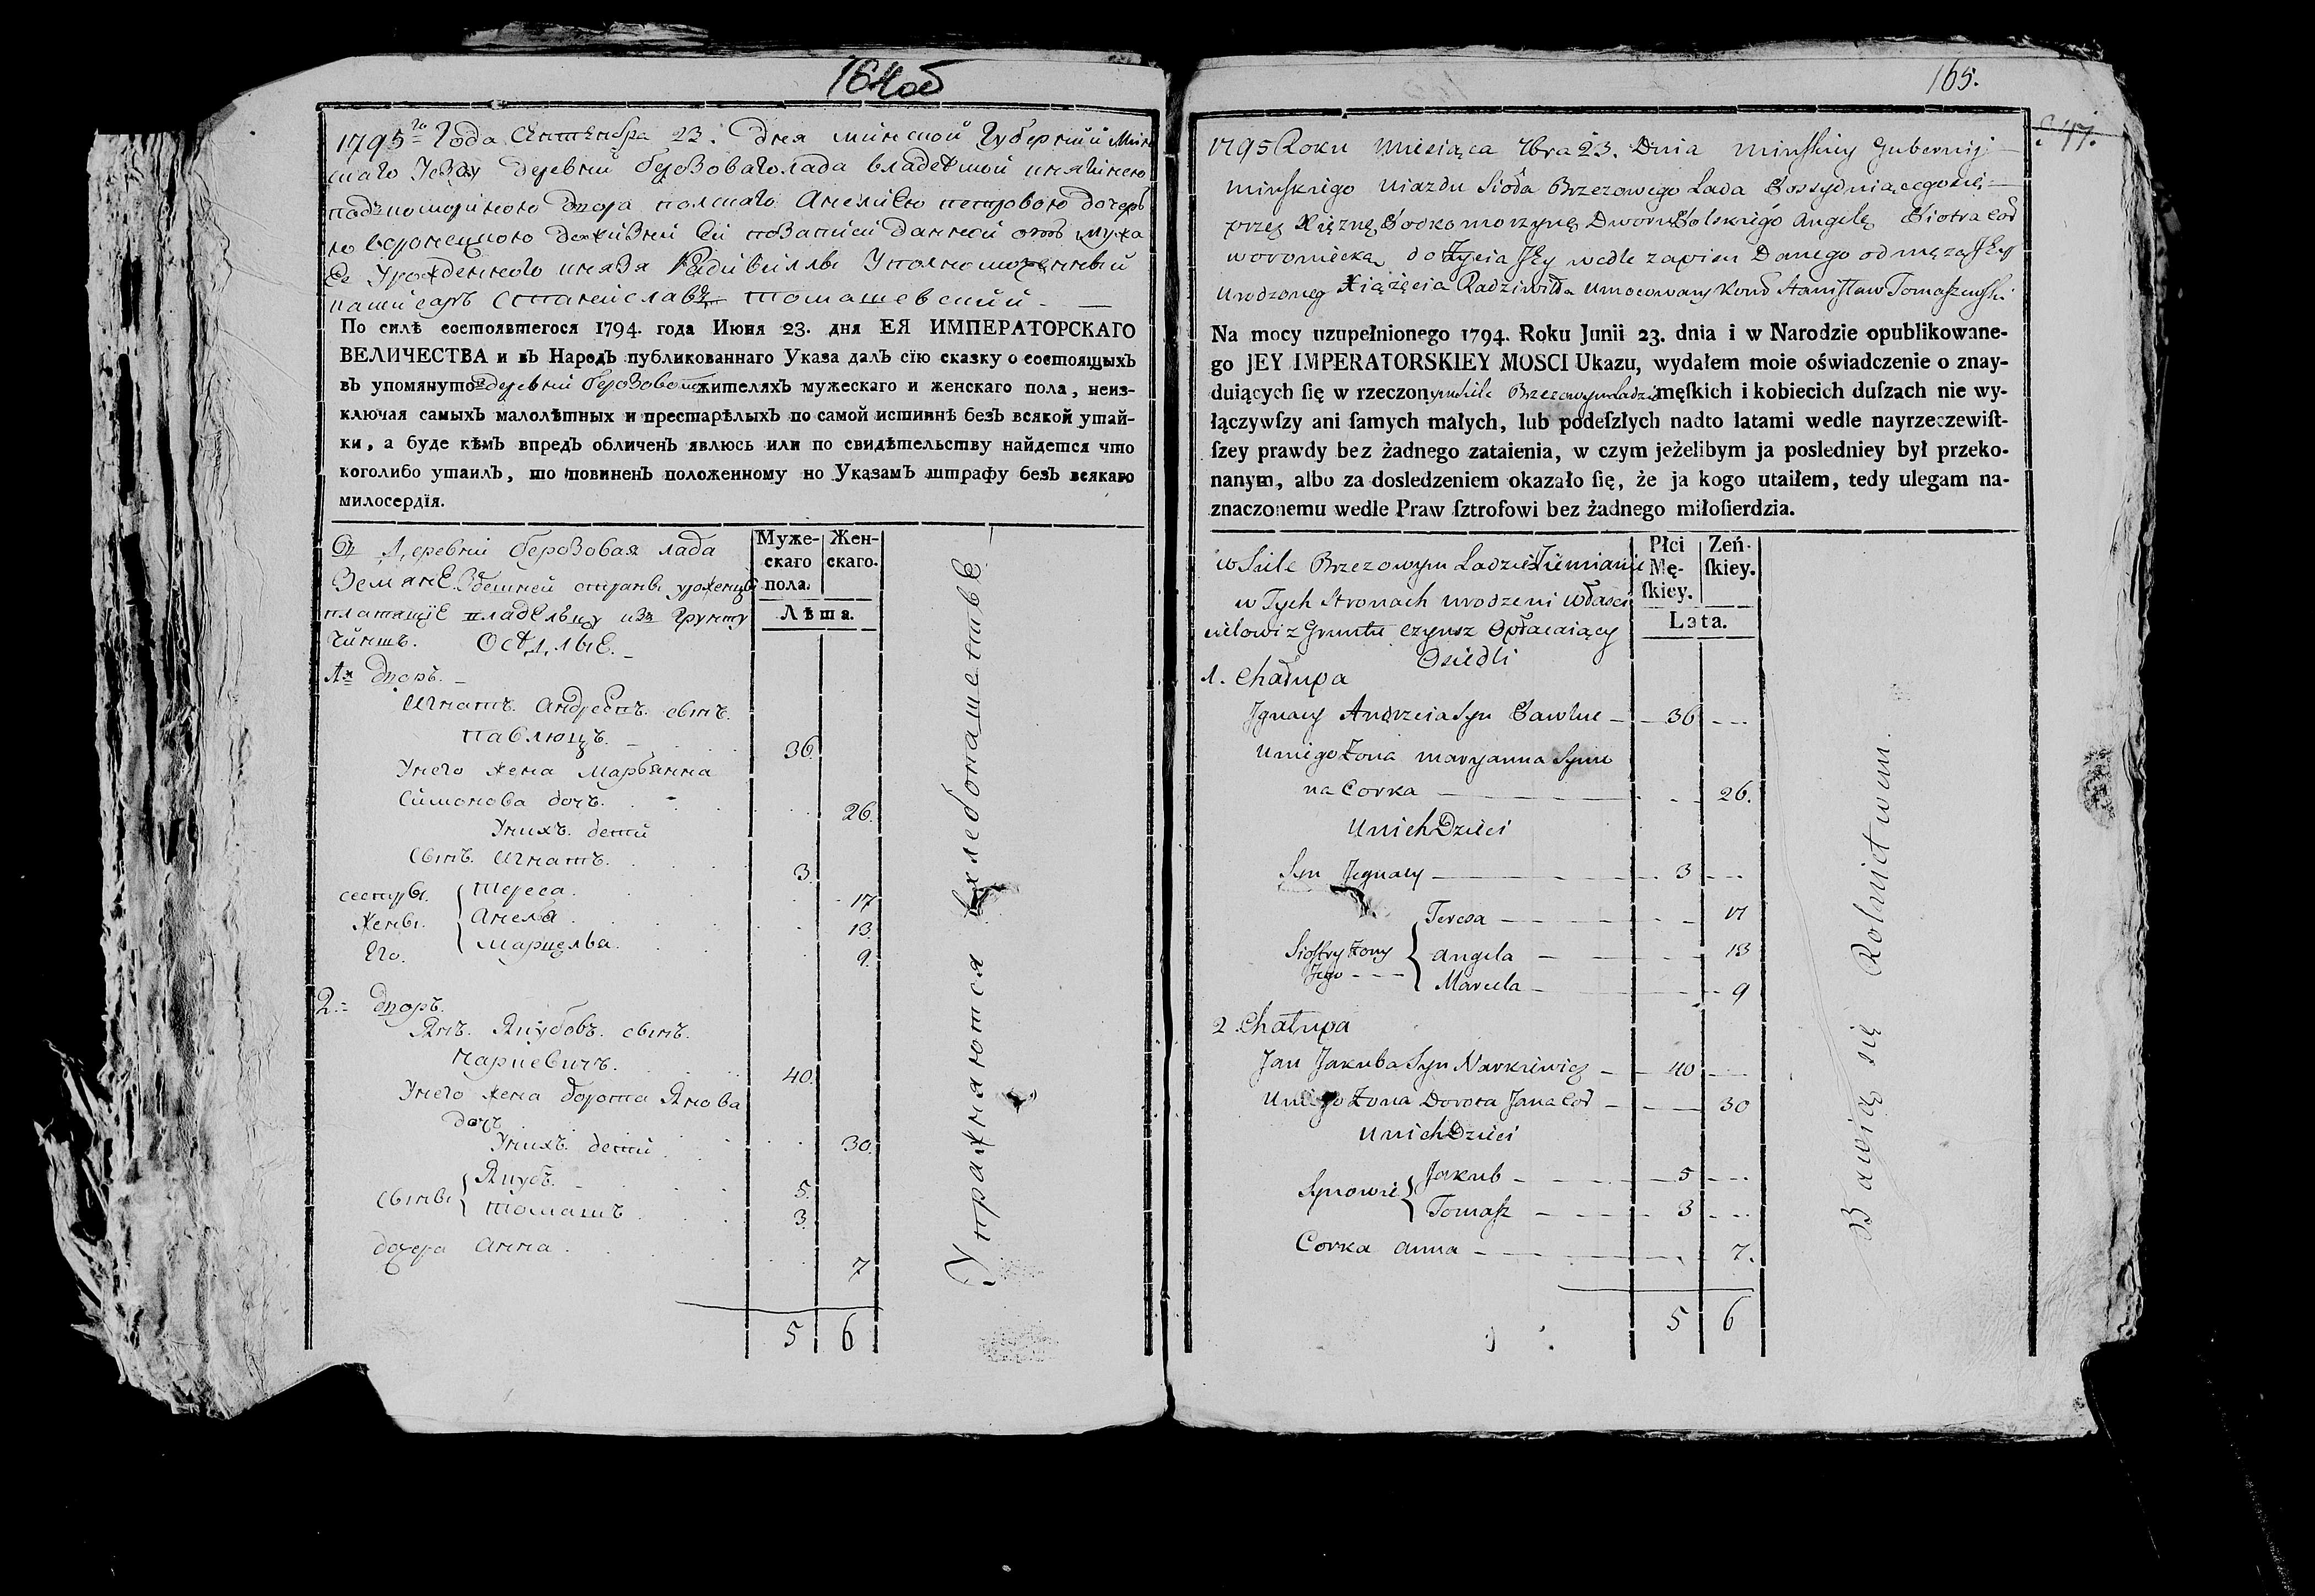 164об
1795го Года Сентебра 23. Дня Минской Губерний Мин
скаго Уезду деревни берозоваголада владеемой княгинею
подкомориною двора полскаго Анелиею петровою дочерь
ю воронецкою доживний ей позаписи данной отъ мужа
Ее Урожденного князя Радивиллы Уполномоченный
Станиславъ Томашевский
По силѣ состоявшегося 1794. года Июня 23. дня ЕЯ ИМПЕРАТОРСКАГО
ВЕЛИЧЕСТВА и въ Народъ публикованнаго Указа далъ сїю сказку о состоящыхъ
въ упомянутой деревни берозовой жителяхъ мужескаго и женскаго пола, неиз-
ключая самыхъ малолѣтныхъ и престарѣлыхъ по самой истиннѣ безъ всякой утай-
ки, а буде кѣмъ впредъ обличенъ явлюсь или по свидѣтельству найдется что
коголибо утаилъ, то повиненъ положенному по Указамъ штрафу безъ всякаго
милосердїя.
Деревни берозовая лада
Земяне Здешней страны уроженцы
платящие владельцу изъ грунту
чиншъ. Оселые.
Муже-скаго пола. Жен-скаго.
Лѣта.
1й дворъ.
Игнатъ Андреевъ сынъ
павлюць. 36.
Унего жена Марьянна
Симонова дочь. 26.
Унихъ дети
Сынъ Игнатъ. 3.
сестры Тереса. 17
жены Анеля. 13.
Его. Марцеля. 9.
2. дворъ.
Янъ Якубовъ сынъ
Наркевичъ. 40.
Унего жена дорота Янова
дочь 30.
Унихъ дети
сыны Якубъ. 5.
Томашъ 3.
дочера анна. 7
5 6
Упражняются вхлебопашестве
165.
47.
1795 Roku Miesiąca 7bra 23. Dnia Minskiey Gubernij
Minskiego Ujazdu Sioła Brzezowego Łada Possydującego się
przez Xiężnę Podkomorzynę Dworu Polskiego Angelę Piotra Cor
woroniecką do Życia Jey wedle zapisu Danego od męża Jey
Urodzoneg Xiążęcia Radziwiłła Umocowany Stanisław Tomaszewski
Na mocy uzupełnionego 1794. Roku Junii 23. dnia i w Narodzie opublikowane-
go JEY IMPERATORSKIEY MOSCI Ukazu, wydałem moie oświadczenie o znay-
duiących ſię w rzeczonym siele Brzezowym Ladzie męſkich i kobiecich duſzach nie wy-
łączywſzy ani ſamych małych, lub podeſzłych nadto latami wedle nayrzeczewiſt-
ſzey prawdy bez żadnego zataienia, w czym jeżelibym ja posledniey był przeko-
nanym, albo za dosledzeniem okazało ſię, że ja kogo utaiłem, tedy ulegam na-
znaczonemu wedle Praw ſztrofowi bez żadnego miłoſierdzia.
w Siele Brzezowym Ladzie Ziemianie
w Tych Stronach urodzeni właści
cielowi z Gruntu czynsz Opłacaiący
Osiedli
Płci Mę-ſkiey. Zeń-ſkiey.
Lata.
1. Chałupa
Jgnacy Andrzeia Syn Pawluc 36
Uniego Żona maryanna Symo
na Corka 26.
Unich Dzieci
Syn Jgnacy 3
Teresa 17
Siostry Żony angela 13
Jego Marcela 9
2. Chałupa
Jan Jakuba Syn Narkiewicz 40
Uniego Żona Dorota Jana Cor 30
Unich Dzieci
Synowie Jakub 5
Tomasz 3
Corka anna 7.
5 6
Bawią się Rolnictwem.